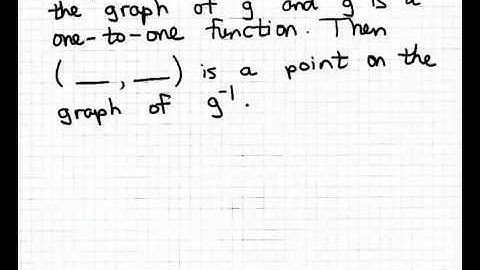 the graph of g and g is a
one-to-one function. Then
( __ , __ ) is a point on the
graph of g⁻¹.